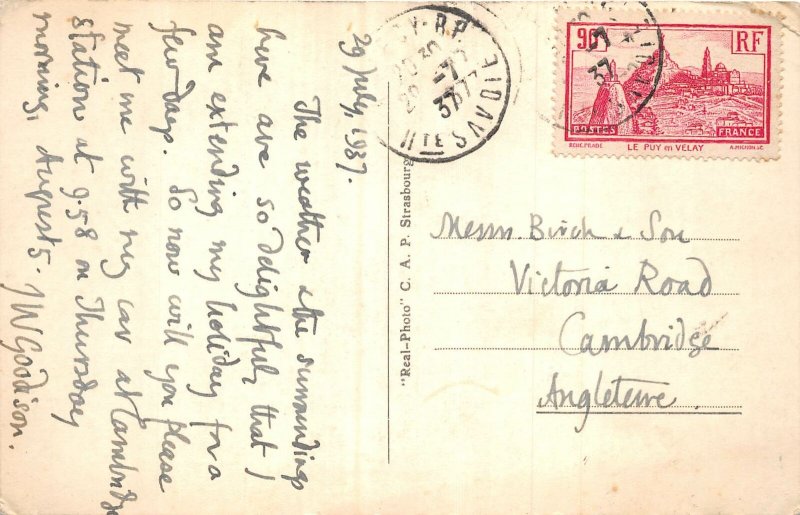 29 July, 1937.
The weather & the surroundings
here are so delightful, that I
am extending my holiday for a
few days. So now will you please
meet me with my car at Cambridge
station at 9.58 on Thursday
morning, August 5. JWGoodison.
37
Hte SAVOIE
"Real-Photo" C. A. P. Strasbourg
90c RF
POSTES FRANCE
LE PUY en VELAY
37
Messrs. Birch & Son
Victoria Road
Cambridge
Angleterre